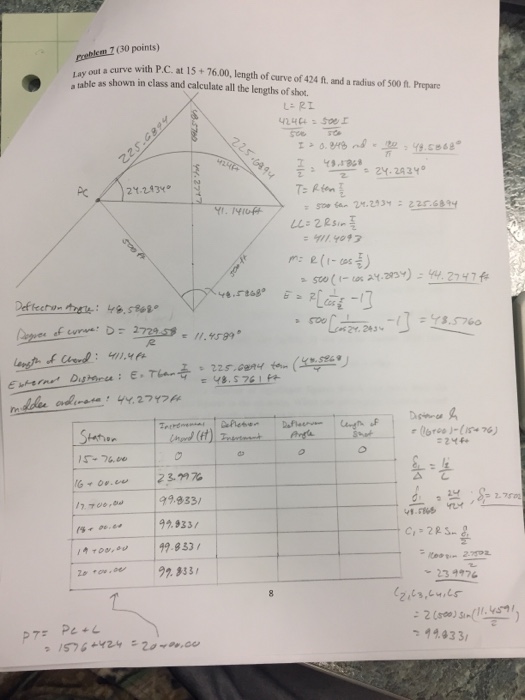 Problem 7 (30 points)
Lay out a curve with P.C. at 15 + 76.00, length of curve of 424 ft. and a radius of 500 ft. Prepare
a table as shown in class and calculate all the lengths of shot.
L = RI
424ft = 500 I
500 500
I = 0.848 rad · 180/π = 48.5868°
I/2 = 48.5868/2 = 24.2934°
T = R tan I/2
= 500 tan 24.2934 = 225.6894
LC = 2R sin I/2
= 411.4093
m = R(1-cos I/2)
= 500(1-cos 24.2934) = 44.2747 ft
E = R[1/cos I/2 - 1]
= 500[1/cos 24.2934 - 1] = 48.5760
225.6894
225.6894
48.5760
424ft
44.2747
PC
24.2934°
411.41 ft
500 ft
500 ft
48.5868°
Deflection Angle: 48.5868°
Degree of curve: D = 5729.58/R = 11.4589°
Length of Chord: 411.4 ft
External Distance: E = T tan I/4 = 225.6894 tan (48.5868/4)
= 48.5761 ft
middle ordinate: 44.2747 ft
Station
Incremental Chord (ft)
Deflection Increment
Deflection Angle
Length of Shot
15+76.00 0 0 0 0
16+00.00 23.9976
17+00.00 99.8331
18+00.00 99.8331
19+00.00 99.8331
20+00.00 99.8331
Distance
= (16+00)-(15+76)
= 24 ft
= 24/424
C₁ = 2R Sin
= 23.9976
C₂, C₃, C₄, C₅
= 2(500) sin(11.4591/2)
= 99.8331
8
PT = PC + L
= 1576+424 = 20+00.00